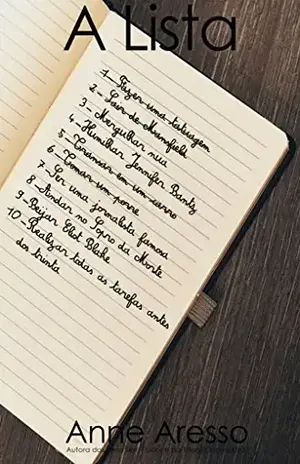 A Lista
1 - Fazer uma tatuagem
2 - Sair de Mansfield
3 - Mergulhar nua
4 - Humilhar Jennifer Bantz
5 - Transar em um carro
6 - Tomar um porre
7 - Ser uma jornalista famosa
8 - Andar no Sopro da Morte
9 - Beijar Eliot Blake
10 - Realizar todas as tarefas antes
dos trinta
Anne Aresso
Autora dos